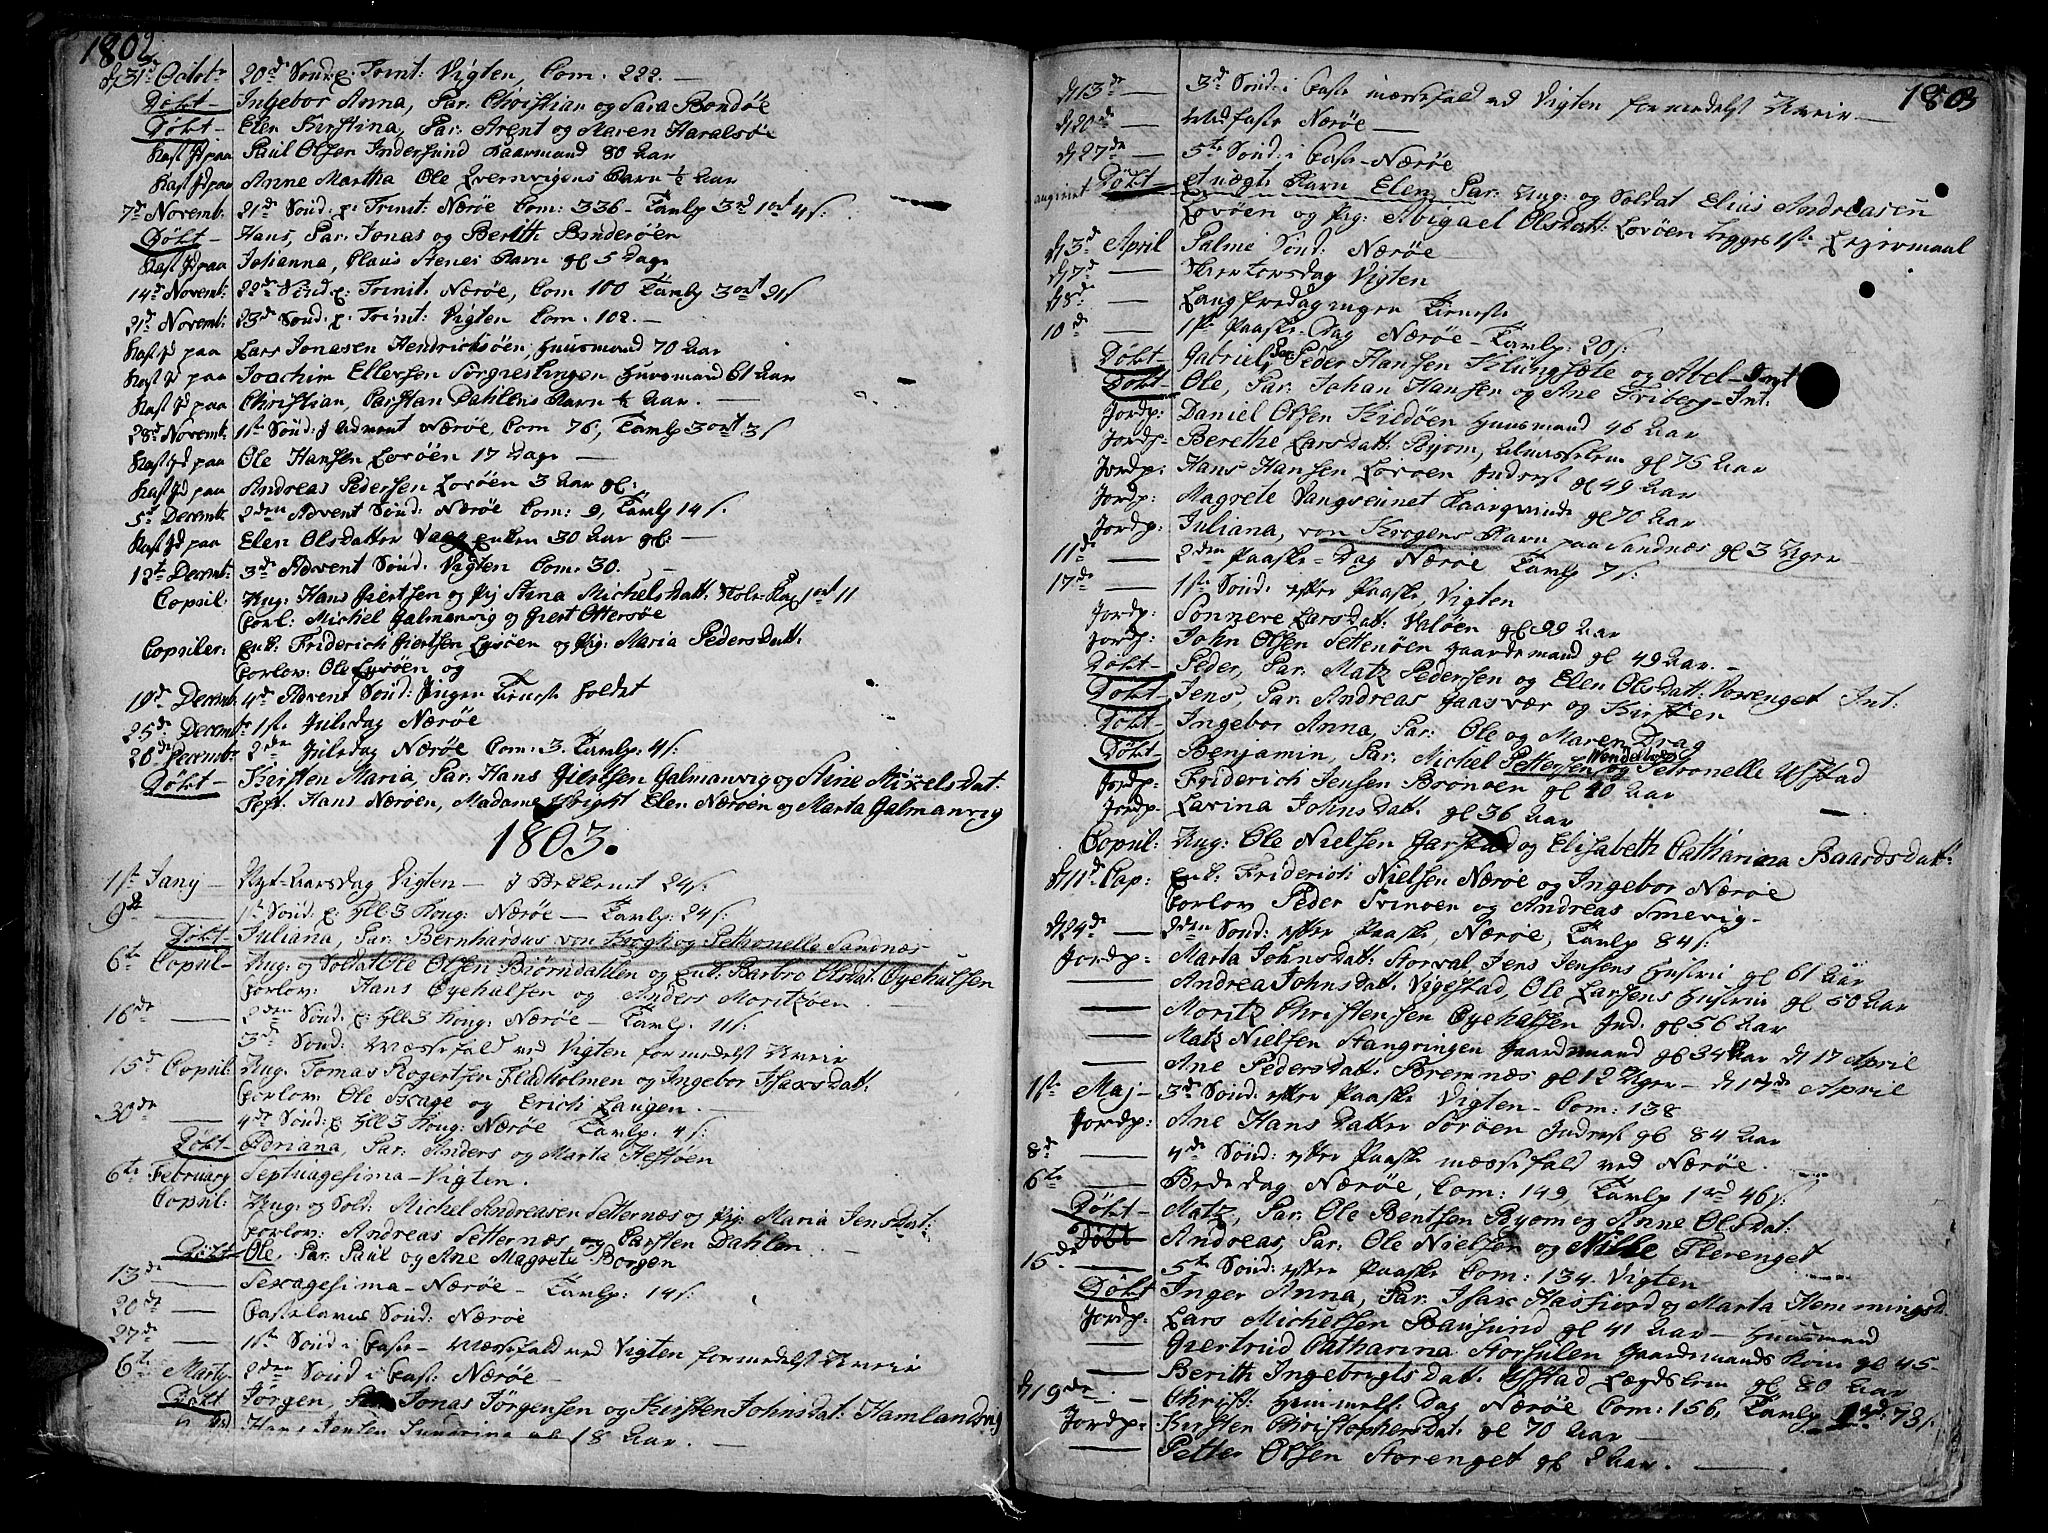 1802
d 31d Octobr 20de Sond: p: Trinit: Vigten, Com. 222. —
Døbt — Ingebor Anna, Par: Christian og Sara Bondøe
Døbt — Elen Kirstina, Par: Arent og Maren Haralsøe
Kast Jd paa Paul Olsen Indersund Gaarmand 80 Aar
Kast Jd paa Anne Martha Ole Qvernvigens Barn ½ Aar
7d Novemb: 21de Sond: p: Trinit: Nærøe Com: 336 — Tavlp 3rd 1ort 4s:
Døbt — Hans, Par: Jonas og Berith Binderøen
Kast Jd paa Johanna, Claus Stenes Barn gl 5 Dage
14d Novemb: 22de Sond p: Trinit: Nærøe, Com 100 Tavlp 3ort 21s
21d Novemb: 23de Sond: p: Trinit: Vigten Com. 102. —
Kast Jd paa Lars Jonesen Hendrichsøen, Huusmand 70 Aar
Kast Jd paa Joachim Ellersen Huusmand 61 Aar
Kast Jd paa Christian, Carstan Dahlens Barn ½ Aar. —
28d Novemb: 1ste Sond: i Advent Nærøe, Com 76, Tavlp 3ort 3s
Kast Jd paa Ole Hansen Lovøen 17 Dage —
Kast Jd paa Andreas Pedersen Lovøen 3 Aar gl:
5d Decemb: 2den Advent Sond: Nærøe Com: 9, Tavlp 14s.
Kast Jd paa Elen Olsdatter Vaag Enken 30 Aar gl: —
12t Decemb: 3de Advent Sond: Vigten Com: 30. —
Copul: Ung: Hans Giertsen og Pig Stina Michelsdatt: 1ort 11
Forl: Michel Galmanvig og Giert Ottersøe
Copuler: Enk: Friderich Giertsen Lysøen og Pig: Maria Pedersdatt:
Forlov: Ole Lysøen og
19d Decemb: 4de Advent Sond: Ingen Tieneste holdet
25d Decemb: 1ste Juledag Nærøe
26de Decemb: 2den Juledag Nærøe Com: 3. Tavlp: 4s:
Døbt — Kirsten Maria, Par: Hans Giertsen Galmanvig og Stine Mixelsdat:
Test. Hans Nærøen, Madame Elen Nærøen og Marta Galmanvig
1803.
1ste Jany — Nyt-Aarsdag Vigten — 24s:
9d — 1ste Sond: p: Hll 3 Kong: Nærøe — Tavlp: 24s:
Døbt — Juliana, Par: Bernhardus von Krogh og Petronelle Sandnæs
6te Copul — Ung: og Soldat Ole Olsen Biørndahlen og Enk: Barbro Olsdat: Øyehalsen
Forlov: Hans Øyehalsen og Anders Moritzøen
16de — 2den Sond: p: Hll 3 Kong: Nærøe — Tavlp: 11s:
3de Sond: Messefald ved Vigten formedelst Uveir
15d Copul: Ung: Tomas Rogertsen Fladholmen og Ingebor Isaxsdatt:
Forlov: Ole Brage og Erich Laugen. —
30de — 4de Sond: p: Hll 3 Kong: Nærøe Tavlp: 4s:
Døbt — Adriana, Par: Anders og Marta Hestøen
6te February Septuagesima — Vigten.
Copul: Ung: og Sold: Michel Andreasen Setternæs og Pig: Maria Jensdat:
Forlov: Andreas Setternæs og Carsten Dahlen —
Døbt Ole, Par: Paul og Ane Magrete Borgen
13de — Sexagesima — Nærøe — Tavlp: 14s:
20de — Fastelavns Sond: Nærøe
27de — 1ste Sond i Faste — Messefald ved Vigten formedelst Uveir
6te Marty — 2den Sond i Fast: Nærøe —
Døbt Jørgen, Par Jonas Jørgensen og Kirsten Johnsdat: Hamlandsvig
Hans Jensen gl 18 Aar. —
1803
d 13de — 3de Sond: i Faste messefald ved Vigten formedelst Uveir —
d 20de — Midfaste Nærøe —
d 27de — 5te Sond: i Faste — Nærøe
angivet Døbt et uægte Barn Elen, Par: Ung: og Soldat Elias Andreasen
Lovøen og Pig: Abigael Olsdatt: Lovøen begges 1ste Leiermaal
d 3de April Palme Sond: Nærøe —
d 7de — Skiertorsdag Vigten
d 8de — Langfredag ingen Tieneste
10de — 1ste Paaske-Dag Nærøe — Tavlp: 20s:
Døbt — Gabriel, Par: Peder Hansen Klungsæte og Abel — Int
Døbt — Ole, Par: Johan Hansen og Ane Friberg — Int:
Jordp: Daniel Olsen Kildøen Huusmand 46 Aar
Jordp: Berethe Larsdatt: Byom, Almisselem gl 75 Aar
Jordp: Hans Hansen Lovøen Inderst gl 49 Aar
Jordp: Magrete Vangsennet Kaargvinde gl 70 Aar
Jordp: Juliana, von Krogens Barn paa Sandnæs gl 3 Uger
11de — 2den Paaske-Dag Nærøe Tavlp 7s:
17de — 1ste Sond: efter Paaske, Vigten
Jordp: Sønnere Larsdatt: Valøen gl 99 Aar
Jordp: John Olsen Settenøen Gaardemand gl 49 Aar. —
Døbt — Peder, Par: Matz Pedersen og Elen Olsdatt: Vorenget Int:
Døbt — Jens, Par: Andreas Gaasvær og Kirsten
Døbt — Ingebor Anna, Par: Ole og Maren Drag
Døbt — Benjamin, Par: Michel Pettersen Wendelboe og Petronelle Ulstad
Jordp: Friderich Jensen Bronøen gl 40 Aar
Jordp: Lavina Johnsdatt: gl 36 Aar
Copul: Ung: Ole Nielsen Garstad og Elisabeth Catharina Baardsdatt:
d 11de Cop: Enk: Friderich Nielsen Nærøe og Ingebor Nærøe
Forlov Peder Svinøen og Andreas Smevig —
d 24de — 2den Sond: efter Paaske, Nærøe, Tavlp 84s:
Jordp: Marta Johnsdatt: Storval, Jens Jensens Hustrue gl 61 Aar
— Andrea Johnsdatt: Vigestad, Ole Larsens Hustrue gl 50 Aar
— Moritz Christensen Øyehalsen Ind: gl 56 Aar
— Matz Nielsen Stangringen Gaardemand gl 34 Aar d 17 April
— Ane Pedersdatt: Bremnæs gl 12 Uger — d 17de April
1ste Maj — 3de Sond: efter Paaske Vigten — Com: 138
Jordp: Ane Hans Datter Sørøen Inderst gl 84 Aar
8de — 4de Sond: efter Paaske messefald ved Nærøe.
6te — Bededag Nærøe, Com: 149, Tavlp 1rd 46s:
Døbt — Matz, Par: Ole Bentsen Byom og Anne Olsdat:
Døbt — Andreas, Par: Ole Nielsen og Nille Flerenget
15de — 5te Sond: efter Paaske Com: 134. Vigten
Døbt — Inger Anna, Par: Isax Hasfiord og Marta Hemmingsd.
Jordp: Lars Michelsen Bausund gl 41 Aar — Huusmand
— Giertrud Catharina Storsulen Gaardmands Kone gl 45 —
— Berith Ingebrigtsdatt: Ulstad Lægdslem gl 80 Aar
d 19de — Christ: Himmelf: Dag Nærøe Com: 156, Tavlp 1rd: 73s:
Jordp: Kirsten Christophersdat: gl 70 Aar —
— Petter Olsen Storenget gl 2 Aar. —